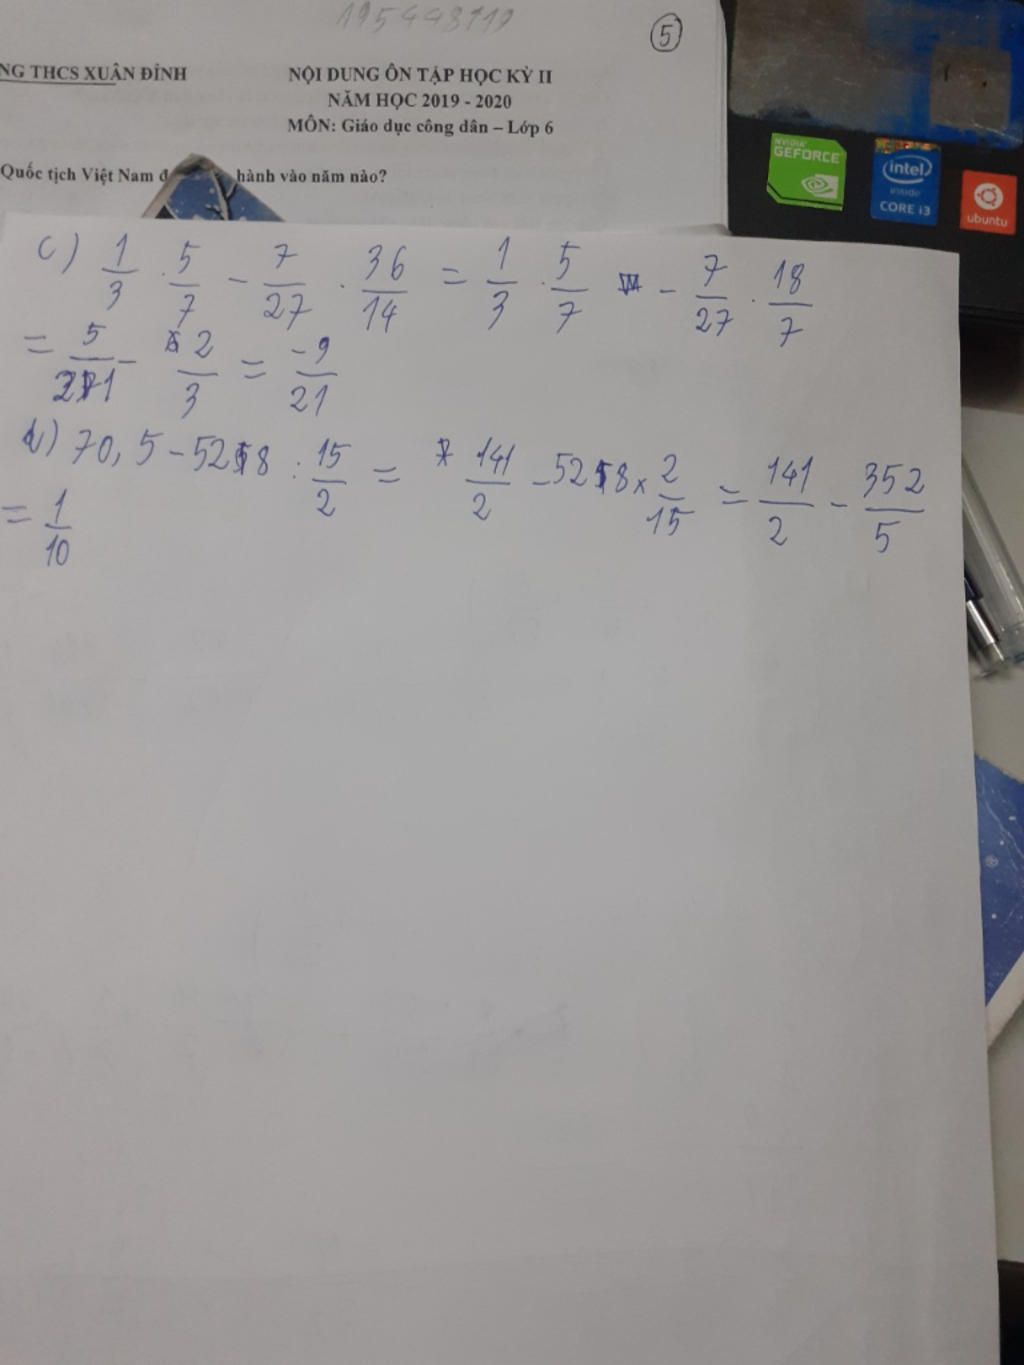 195448719
5
NG THCS XUÂN ĐỈNH
NỘI DUNG ÔN TẬP HỌC KỲ II
NĂM HỌC 2019 - 2020
MÔN: Giáo dục công dân – Lớp 6
Quốc tịch Việt Nam đ hành vào năm nào?
NVIDIA GEFORCE
intel inside CORE i3
ubuntu
c) 1/3 . 5/7 - 7/27 . 36/14 = 1/3 . 5/7 - 7/27 . 18/7
= 5/21 - 2/3 = -9/21
d) 70,5 - 528 : 15/2 = 141/2 - 528 x 2/15 = 141/2 - 352/5
= 1/10